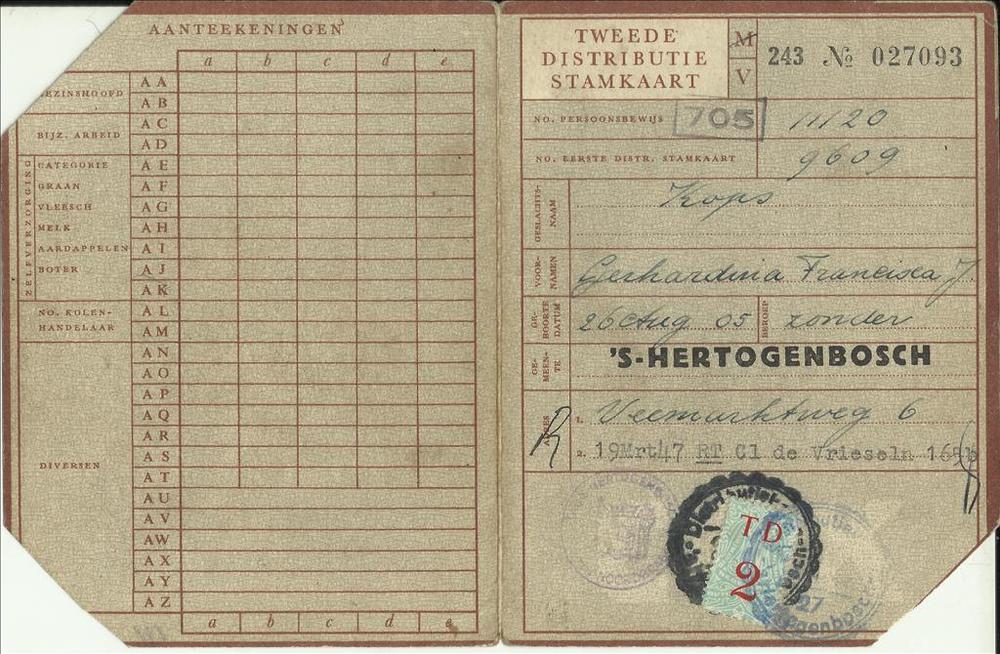 AANTEEKENINGEN
a b c d e
GEZINSHOOFD
AA
AB
BIJZ. ARBEID
AC
AD
ZELFVERZORGING
CATEGORIE AE
GRAAN AF
VLEESCH AG
MELK AH
AARDAPPELEN AI
BOTER AJ
AK
NO. KOLEN-
HANDELAAR
AL
AM
DIVERSEN
AN
AO
AP
AQ
AR
AS
AT
AU
AV
AW
AX
AY
AZ
a b c d e
TWEEDE
DISTRIBUTIE
STAMKAART
M
V
243 № 027093
NO. PERSOONSBEWIJS 705 11120
NO. EERSTE DISTR. STAMKAART 9609
GESLACHTS-
NAAM
Kops
VOOR-
NAMEN
Gerhardina Francisca J.
GE-
BOORTE
DATUM
26 Aug 05
BEROEP
zonder
GE-
MEEN-
TE
'S-HERTOGENBOSCH
ADRES
1. Veemarktweg 6
2. 19Mrt47 RT Cl de Vrieseln 165b
TD
2
27